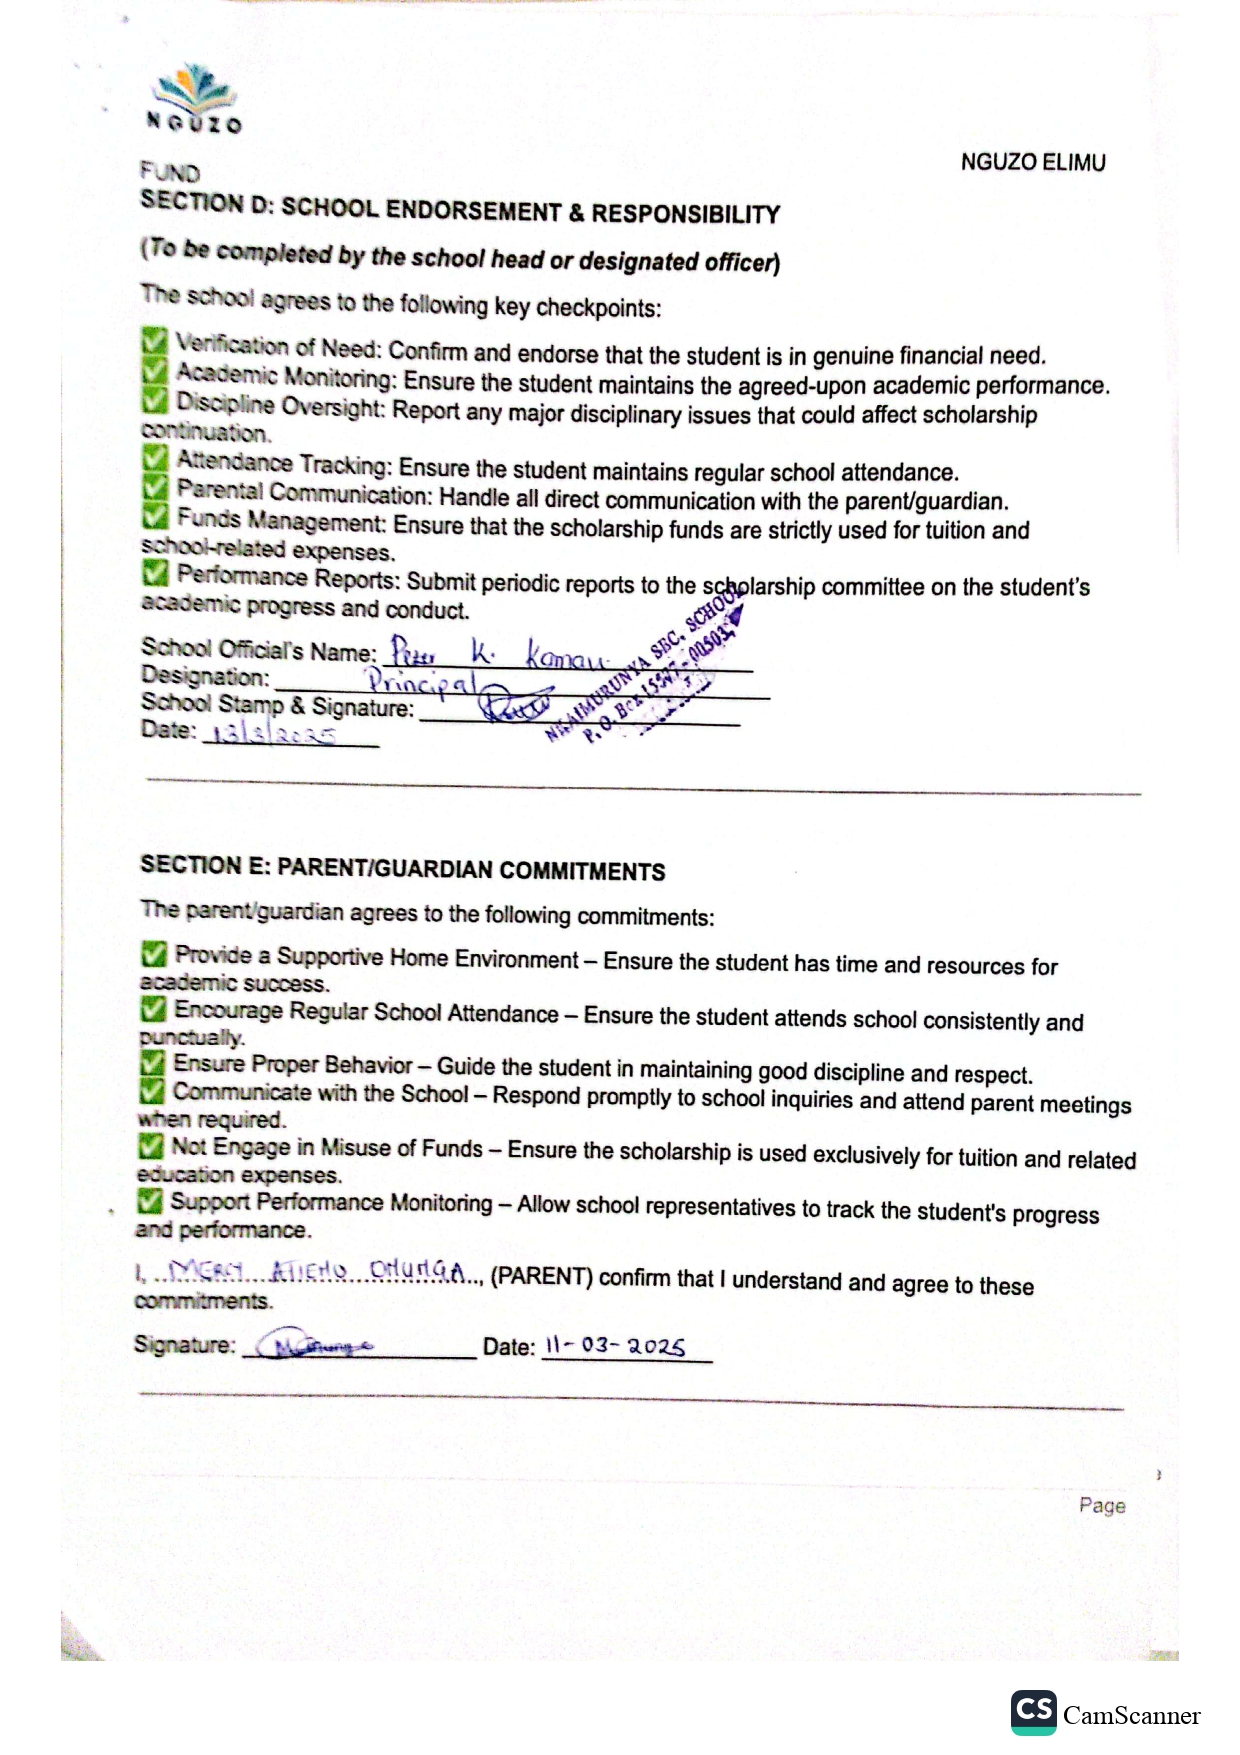 NGUZO
NGUZO ELIMU
FUND
SECTION D: SCHOOL ENDORSEMENT & RESPONSIBILITY
(To be completed by the school head or designated officer)
The school agrees to the following key checkpoints:
✅ Verification of Need: Confirm and endorse that the student is in genuine financial need.
✅ Academic Monitoring: Ensure the student maintains the agreed-upon academic performance.
✅ Discipline Oversight: Report any major disciplinary issues that could affect scholarship
continuation.
✅ Attendance Tracking: Ensure the student maintains regular school attendance.
✅ Parental Communication: Handle all direct communication with the parent/guardian.
✅ Funds Management: Ensure that the scholarship funds are strictly used for tuition and
school-related expenses.
✅ Performance Reports: Submit periodic reports to the scholarship committee on the student's
academic progress and conduct.
School Official's Name: Peter K. Kamau
Designation: Principal
School Stamp & Signature:
NKAIMURUNYA SEC. SCHOOL
P. O. Box
Date: 13/3/2025
SECTION E: PARENT/GUARDIAN COMMITMENTS
The parent/guardian agrees to the following commitments:
✅ Provide a Supportive Home Environment – Ensure the student has time and resources for
academic success.
✅ Encourage Regular School Attendance – Ensure the student attends school consistently and
punctually.
✅ Ensure Proper Behavior – Guide the student in maintaining good discipline and respect.
✅ Communicate with the School – Respond promptly to school inquiries and attend parent meetings
when required.
✅ Not Engage in Misuse of Funds – Ensure the scholarship is used exclusively for tuition and related
education expenses.
✅ Support Performance Monitoring – Allow school representatives to track the student's progress
and performance.
I, MERCY ATIENO OHUNGA, (PARENT) confirm that I understand and agree to these
commitments.
Signature: Date: 11-03-2025
Page
CS CamScanner